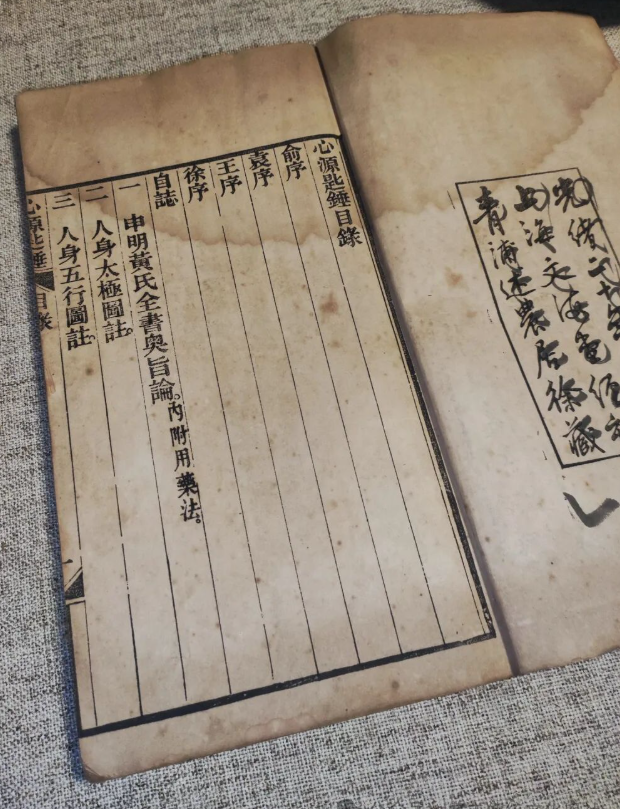 光緒二十
上海文海
青浦述農居徐藏
心源匙錘目錄
俞序
袁序
王序
徐序
自誌
一 申明黃氏全書奥旨論。內附用藥法。
二 人身太極圖註。
三 人身五行圖註。
心源匙錘 目錄